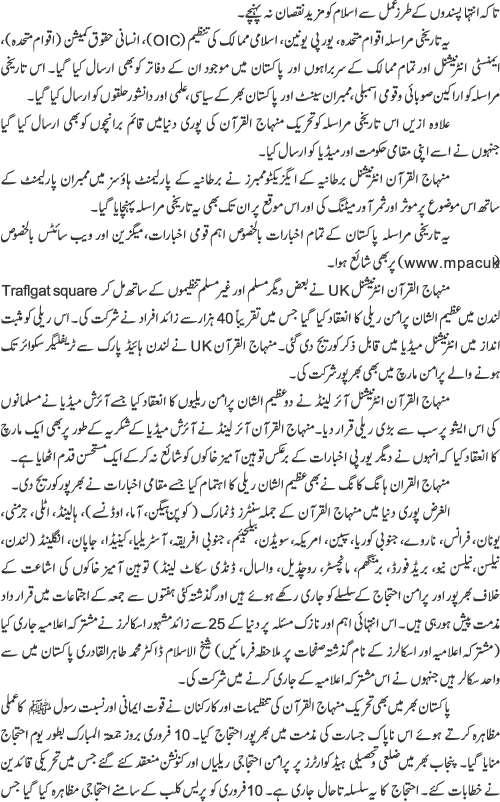 تاکہ انتہا پسندوں کے طرزِ عمل سے اسلام کو مزید نقصان نہ پہنچے۔
یہ تاریخی مراسلہ اقوام متحدہ، یورپی یونین، اسلامی ممالک کی تنظیم (OIC)، انسانی حقوق کمیشن (اقوام متحدہ)،
ایمنسٹی انٹرنیشنل اور تمام ممالک کے سربراہوں اور پاکستان میں موجود ان کے دفاتر کو بھی ارسال کیا گیا۔ اس تاریخی
مراسلہ کو اراکین صوبائی و قومی اسمبلی، ممبران سینٹ اور پاکستان بھر کے سیاسی، علمی اور دانشور حلقوں کو ارسال کیا گیا۔
علاوہ ازیں اس تاریخی مراسلہ کو تحریک منہاج القرآن کی پوری دنیا میں قائم برانچوں کو بھی ارسال کیا گیا
جنہوں نے اسے اپنی مقامی حکومت اور میڈیا کو ارسال کیا۔
منہاج القرآن انٹرنیشنل برطانیہ کے ایگزیکٹو ممبرز نے برطانیہ کے پارلیمنٹ ہاؤسز میں ممبران پارلیمنٹ کے
ساتھ اس موضوع پر موثر اور ثمر آور میٹنگ کی اور اس موقع پر ان تک بھی یہ تاریخی مراسلہ پہنچایا گیا۔
یہ تاریخی مراسلہ پاکستان کے تمام اخبارات بالخصوص اہم قومی اخبارات، میگزین اور ویب سائٹس بالخصوص
(www.mpacuk) پر بھی شائع ہوا۔
منہاج القرآن انٹرنیشنل UK نے بعض دیگر مسلم اور غیر مسلم تنظیموں کے ساتھ مل کر Traflgat square
لندن میں عظیم الشان پرامن ریلی کا انعقاد کیا گیا جس میں تقریباً 40 ہزار سے زائد افراد نے شرکت کی۔ اس ریلی کو مثبت
انداز میں انٹرنیشنل میڈیا میں قابل ذکر کوریج دی گئی۔ منہاج القرآن UK نے لندن ہائیڈ پارک سے ٹریفلیگر سکوائر تک
ہونے والے پرامن مارچ میں بھی بھرپور شرکت کی۔
منہاج القرآن انٹرنیشنل آئرلینڈ نے دو عظیم الشان پرامن ریلیوں کا انعقاد کیا جسے آئرش میڈیا نے مسلمانوں
کی اس ایشو پر سب سے بڑی ریلی قرار دیا۔ منہاج القرآن آئرلینڈ نے آئرش میڈیا کے شکریہ کے طور پر بھی ایک مارچ
کا انعقاد کیا کہ انہوں نے دیگر یورپی اخبارات کے برعکس توہین آمیز خاکوں کو شائع نہ کر کے ایک مستحسن قدم اٹھایا ہے۔
منہاج القران ہانگ کانگ نے بھی عظیم الشان ریلی کا اہتمام کیا جسے مقامی اخبارات نے بھرپور کوریج دی۔
الغرض پوری دنیا میں منہاج القرآن کے جملہ سنٹرز ڈنمارک (کوپن ہیگن، آما، اوڈنسے)، ہالینڈ، اٹلی، جرمنی،
یونان، فرانس، ناروے، جنوبی کوریا، سپین، امریکہ، سویڈن، بیلجیئم، جنوبی افریقہ، آسٹریلیا، کینیڈا، جاپان، انگلینڈ (لندن،
نیلسن، نیلسن نیو، بریڈفورڈ، برمنگھم، مانچسٹر، روچڈیل، والسال، ڈنڈی سکاٹ لینڈ) توہین آمیز خاکوں کی اشاعت کے
خلاف بھرپور اور پرامن احتجاج کے سلسلے کو جاری رکھے ہوئے ہیں اور گذشتہ کئی ہفتوں سے جمعہ کے اجتماعات میں قرارداد
مذمت پیش ہو رہی ہیں۔ اس انتہائی اہم اور نازک مسئلہ پر دنیا کے 25 سے زائد مشہور اسکالرز نے مشترکہ اعلامیہ جاری کیا
(مشترکہ اعلامیہ اور اسکالرز کے نام گذشتہ صفحات پر ملاحظہ فرمائیں) شیخ الاسلام ڈاکٹر محمد طاہرالقادری پاکستان میں سے
واحد سکالر ہیں جنہوں نے اس مشترکہ اعلامیہ کے جاری کرنے میں شرکت کی۔
پاکستان بھر میں بھی تحریک منہاج القرآن کی تنظیمات اور کارکنان نے قوت ایمانی اور نسبت رسول ﷺ کا عملی
مظاہرہ کرتے ہوئے اس ناپاک جسارت کی مذمت میں بھرپور احتجاج کیا۔ 10 فروری بروز جمعۃ المبارک بطور یوم احتجاج
منایا گیا۔ پنجاب بھر میں ضلعی و تحصیلی ہیڈ کوارٹرز پر پرامن احتجاجی ریلیاں اور کنونشن منعقد کئے گئے جس میں تحریکی قائدین
نے خطابات کئے۔ احتجاج کا یہ سلسلہ تاحال جاری ہے۔ 10 فروری کو پریس کلب کے سامنے احتجاجی مظاہرہ کیا گیا جس